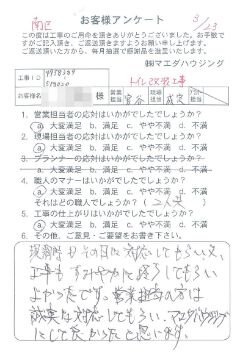 南区
お客様アンケート
3/23
この度は工事のご用命を頂きありがとうございました。お手数で
すがご記入頂き、ご返送頂きますようお願い申し上げます。
ご返送頂いた方から、毎月抽選で感謝品を進呈いたします。
㈱マエダハウジング
工事ID
お客様名
様
営業担当
現場担当
トイレ改装工事
1. 営業担当者の応対はいかがでしたでしょうか?
a. 大変満足 b. 満足 c. やや不満 d. 不満
2. 現場担当者の応対はいかがでしたでしょうか?
a. 大変満足 b. 満足 c. やや不満 d. 不満
3. プランナーの応対はいかがでしたでしょうか?
a. 大変満足 b. 満足 c. やや不満 d. 不満
4. 職人のマナーはいかがでしたでしょうか?
a. 大変満足 b. 満足 c. やや不満 d. 不満
それはどの職人でしょうか?(
5. 工事の仕上がりはいかがでしたでしょうか?
a. 大変満足 b. 満足 c. やや不満 d. 不満
6. その他、ご意見・ご要望をお書き下さい。
対応してもらい
工事も
してもらい
よかったです。営業担当の方は
誠実に対応してもらい、マエダハウジング
にして良かったと思います。